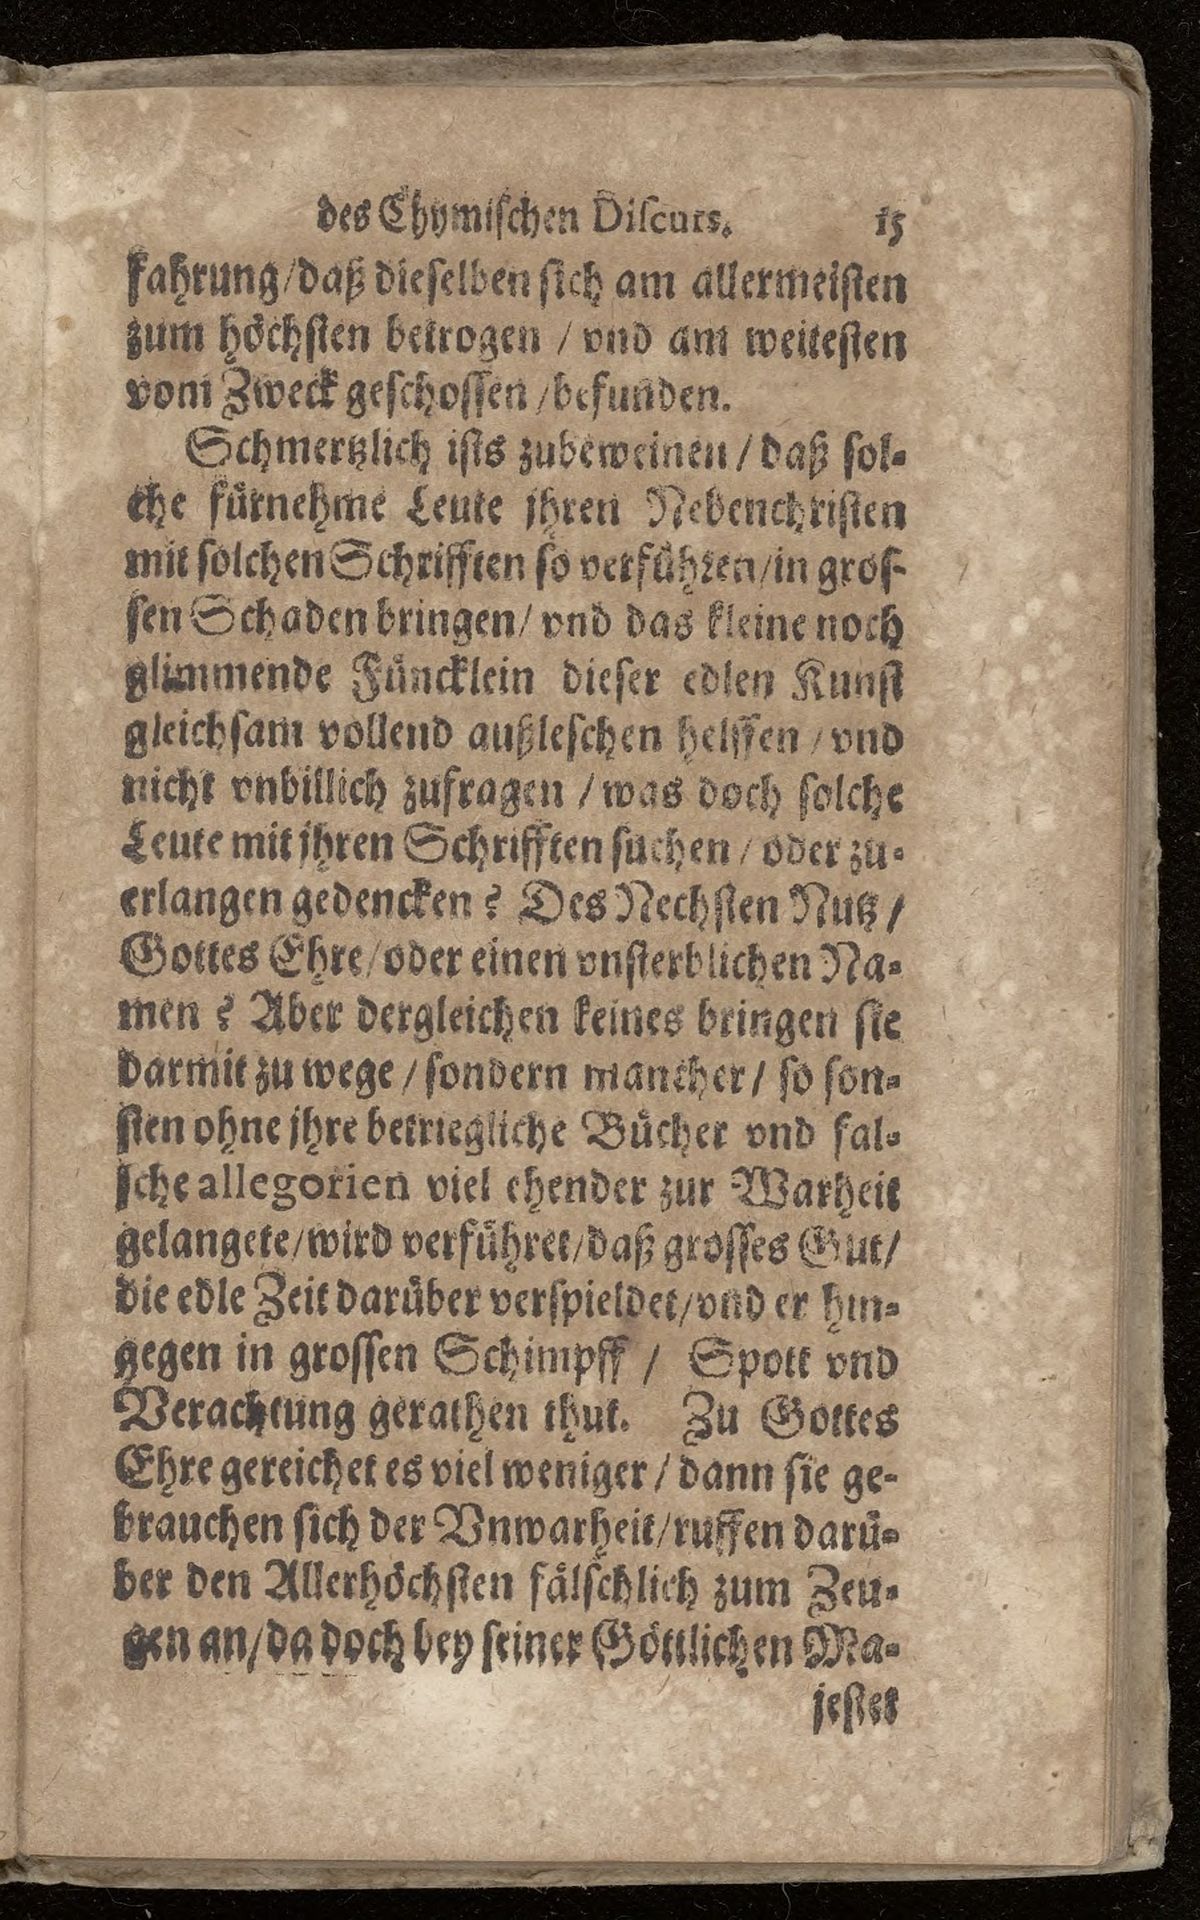 des Chymischen Discurs. 15
fahrung/daß dieselben sich am allermeisten
zum höchsten betrogen / vnd am weitesten
vom Zweck geschossen /befunden.
Schmertzlich ists zubeweinen / daß sol-
che fürnehme Leute jhren Nebenchristen
mit solchen Schrifften so verführen/in gros-
sen Schaden bringen/ vnd das kleine noch
glimmende Füncklein dieser edlen Kunst
gleichsam vollend außleschen helffen / vnd
nicht vnbillich zufragen / was doch solche
Leute mit jhren Schrifften suchen / oder zu-
erlangen gedencken? Des Nechsten Nutz /
Gottes Ehre/oder einen vnsterblichen Na-
men? Aber dergleichen keines bringen sie
darmit zu wege / sondern mancher / so son-
sten ohne jhre betriegliche Bücher vnd fal-
sche allegorien viel ehender zur Warheit
gelangete/wird verführet/daß grosses Gut/
die edle Zeit darüber verspieldet/vnd er hin-
gegen in grossen Schimpff / Spott vnd
Verachtung gerathen thut. Zu Gottes
Ehre gereichet es viel weniger / dann sie ge-
brauchen sich der Vnwarheit/ruffen darü-
ber den Allerhöchsten fälschlich zum Zeu-
gen an/da doch bey seiner Göttlichen Ma-
jestet